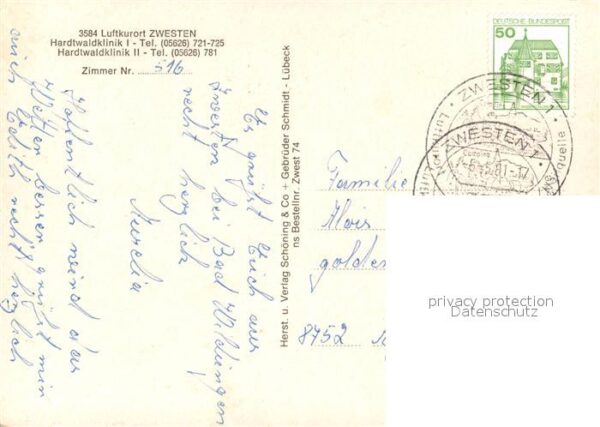 3584 Luftkurort ZWESTEN
Hardtwaldklinik I - Tel. (05626) 721-725
Hardtwaldklinik II - Tel. (05626) 781
Zimmer Nr. 516
Es grüßt Euch aus
Zwesten bei Bad Wildungen
recht herzlich
Aurelia
Hoffentlich wird das
Wetter besser, grüßt mir
auch Edith recht herzlich
Herst. u. Verlag Schöning & Co + Gebrüder Schmidt - Lübeck
ns Bestellnr. Zwest 74
DEUTSCHE BUNDESPOST
50
ZWESTEN 1
Luft
quelle
ZWESTEN 1
81-17
Familie
Alois
golde
8752
privacy protection
Datenschutz